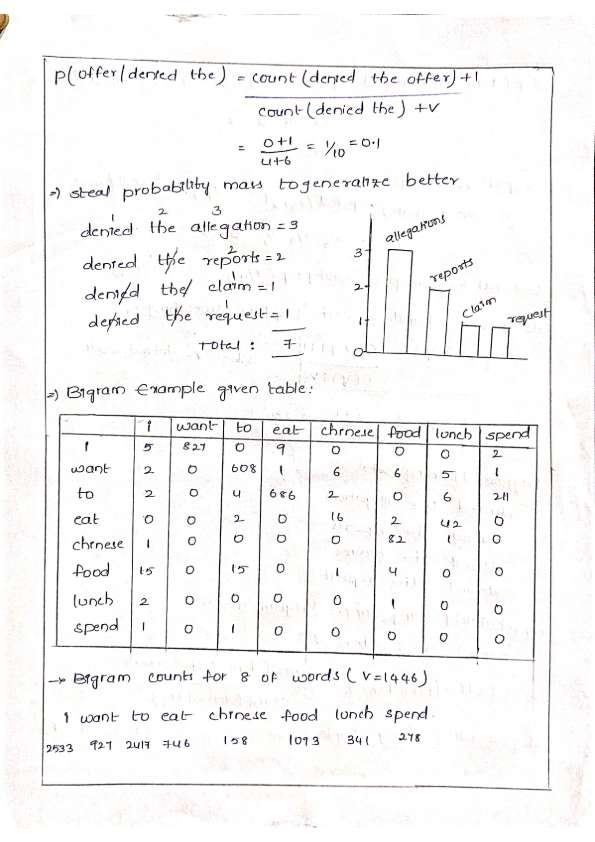 P(offer/denied the) = count (denied the offer)+1
count (denied the) +V
= 0+1/4+6 = 1/10 = 0.1
=) steal probability mass to generalize better
1 2 3
denied the allegation = 3
2
denied the reports = 2
1
denied the claim = 1
1
denied the request = 1
Total : 7
allegations
reports
claim
request
3
2
1
0
=) Bigram Example given table:
I want to eat chinese food lunch spend
I 5 827 0 9 0 0 0 2
want 2 0 608 1 6 6 5 1
to 2 0 4 686 2 0 6 211
eat 0 0 2 0 16 2 42 0
chinese 1 0 0 0 0 82 1 0
food 15 0 15 0 1 4 0 0
lunch 2 0 0 0 0 1 0 0
spend 1 0 1 0 0 0 0 0
→ Bigram counts for 8 of words (V=1446)
I want to eat chinese food lunch spend.
2533 927 2417 746 158 1093 341 278